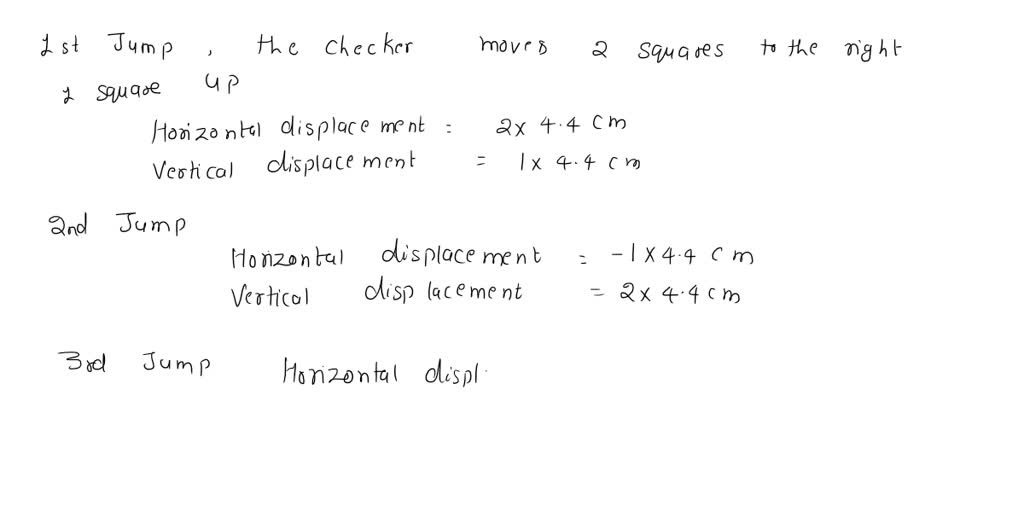 1st Jump, the checker moves 2 squares to the right
1 square up
Horizontal displacement = 2x 4.4 cm
Vertical displacement = 1x 4.4 cm
2nd Jump
Horizontal displacement = -1 x 4.4 cm
Vertical displacement = 2x 4.4 cm
3rd Jump Horizontal displ